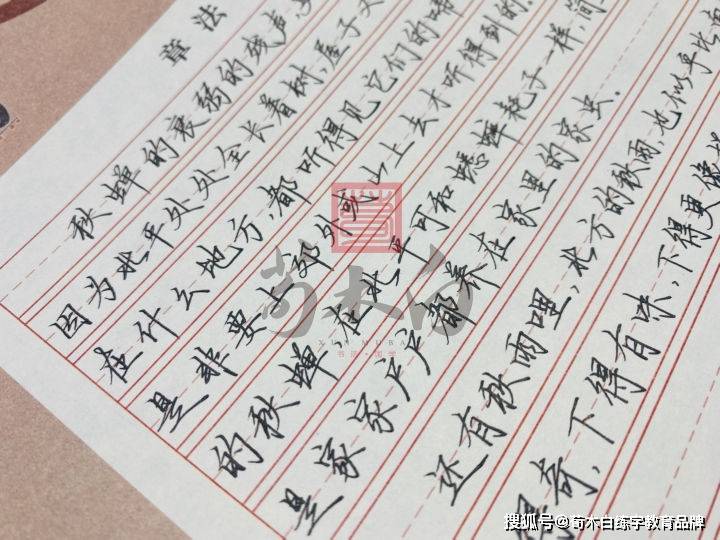 章法
秋蝉的衰弱的残声,
因为北平处处全长着树,屋子又
在什么地方,都听得见它们的啼
是非要上郊外或山上去才听得到的。
的秋蝉,在北平可和蟋蟀耗子一样,简
是家家户户都养在家里的家虫。
还有秋雨哩,北方的秋雨,也似乎比南
得奇,下得有味,下得更像样
荀木白
XUN MU BAI
书法·国学
搜狐号@荀木白练字教育品牌